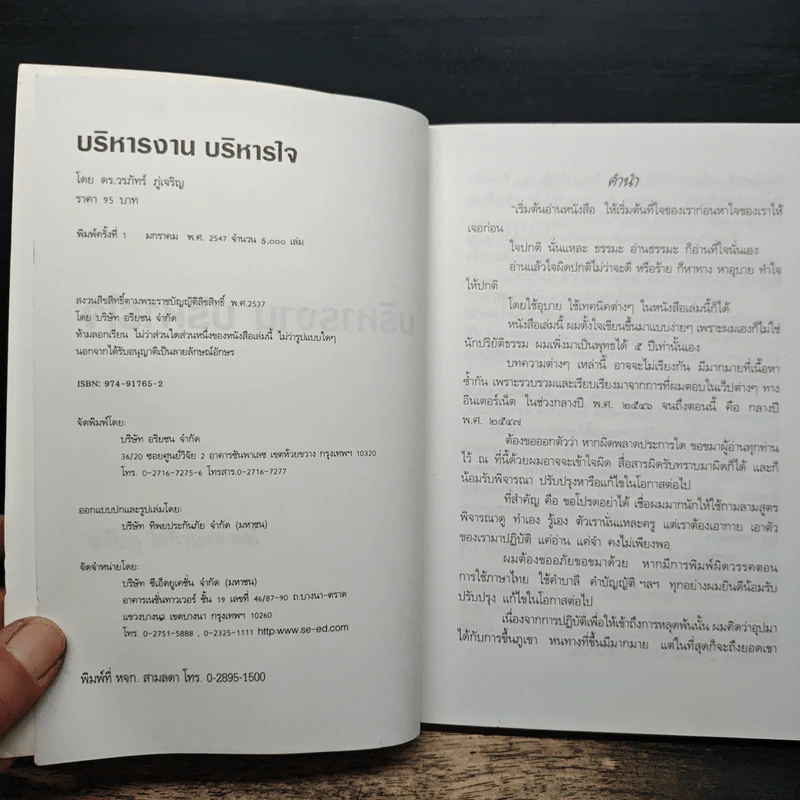 บริหารงาน บริหารใจ
โดย ดร.วรภัทร์ ภู่เจริญ
ราคา 95 บาท
พิมพ์ครั้งที่ 1 มกราคม พ.ศ. 2547 จำนวน 5,000 เล่ม
สงวนสิขสิทธิ์ตามพระราชบัญญัติลิขสิทธิ์ พ.ศ.2537
โดย บริษัท อริยชน จำกัด
ห้ามลอกเรียน ไม่ว่าส่วนใดส่วนหนึ่งของหนังสือเล่มนี้ ไม่ว่ารูปแบบใดๆ
นอกจากได้รับอนุญาติเป็นลายลักษณ์อักษร
ISBN: 974-91765-2
จัดพิมพ์โดย:
บริษัท อริยชน จำกัด
36/20 ซอยศูนย์วิจัย 2 อาคารชันพาเลซ เขตห้วยขวาง กรุงเทพฯ 10320
โทร. 0-2716-7275-6 โทรสาร.0-2716-7277
ออกแบบปกและรูปเล่มโดย:
บริษัท ทิพยประกันภัย จำกัด (มหาชน)
จัดจำหน่ายโดย:
บริษัท ซีเอ็ดยูเคชั่น จำกัด (มหาชน)
อาคารเนชั่นทาวเวอร์ ชั้น 19 เลขที่ 46/87-90 ถ.บางนา-ตราด
แขวงบางนา เขตบางนา กรุงเทพฯ 10260
โทร. 0-2751-5888 , 0-2325-1111 http:www.se-ed.com
พิมพ์ที่ หจก. สามลดา โทร. 0-2895-1500
คำนำ
"เริ่มต้นอ่านหนังสือ ให้เริ่มต้นที่ใจของเราก่อนหาใจของเราให้
เจอก่อน
ใจปกติ นั่นแหละ ธรรมะ อ่านธรรมะ ก็อ่านที่ใจนั่นเอง
อ่านแล้วใจผิดปกติไม่ว่าจะดี หรือร้าย ก็หาทาง หาอุบาย ทำใจ
ให้ปกติ
โดยใช้อุบาย ใช้เทคนิคต่างๆ ในหนังสือเล่มนี้ก็ได้
หนังสือเล่มนี้ ผมตั้งใจเขียนขึ้นมาแบบง่ายๆ เพราะผมเองก็ไม่ใช่
นักปริยัติธรรม ผมเพิ่งมาเป็นพุทธได้ ๕ ปีเท่านั้นเอง
บทความต่างๆ เหล่านี้ อาจจะไม่เรียงกัน มีมากมายที่เนื้อหา
ซ้ำกัน เพราะรวบรวมและเรียบเรียงมาจากการที่ผมตอบในเว็ปต่างๆ ทาง
อินเตอร์เน็ต ในช่วงกลางปี พ.ศ. ๒๕๔๖ จนถึงตอนนี้ คือ กลางปี
พ.ศ. ๒๕๔๗
ต้องขอออกตัวว่า หากผิดพลาดประการใด ขอขมาผู้อ่านทุกท่าน
ไว้ ณ ที่นี้ด้วยผมอาจจะเข้าใจผิด สื่อสารผิดรับทราบมาผิดก็ได้ และก็
น้อมรับพิจารณา ปรับปรุงหารือแก้ไขในโอกาสต่อไป
ที่สำคัญ คือ ขอโปรดอย่าได้ เชื่อผมมากนักให้ใช้กามลามสูตร
พิจารณาดู ทำเอง รู้เอง ตัวเรานั่นแหละครู แต่เราต้องเอากาย เอาตัว
ของเรามาปฏิบัติ แค่อ่าน แค่จำ คงไม่เพียงพอ
ผมต้องขออภัยขอขมาด้วย หากมีการพิมพ์ผิดวรรคตอน
การใช้ภาษาไทย ใช้คำบาลี คำบัญญัติ ฯลฯ ทุกอย่างผมยินดีน้อมรับ
ปรับปรุง แก้ไขในโอกาสต่อไป
เนื่องจากการปฏิบัติเพื่อให้เข้าถึงการหลุดพ้นนั้น ผมคิดว่าอุปมา
ได้กับการขึ้นภูเขา หนทางที่ขึ้นมีมากมาย แต่ในที่สุดก็จะถึงยอดเขา